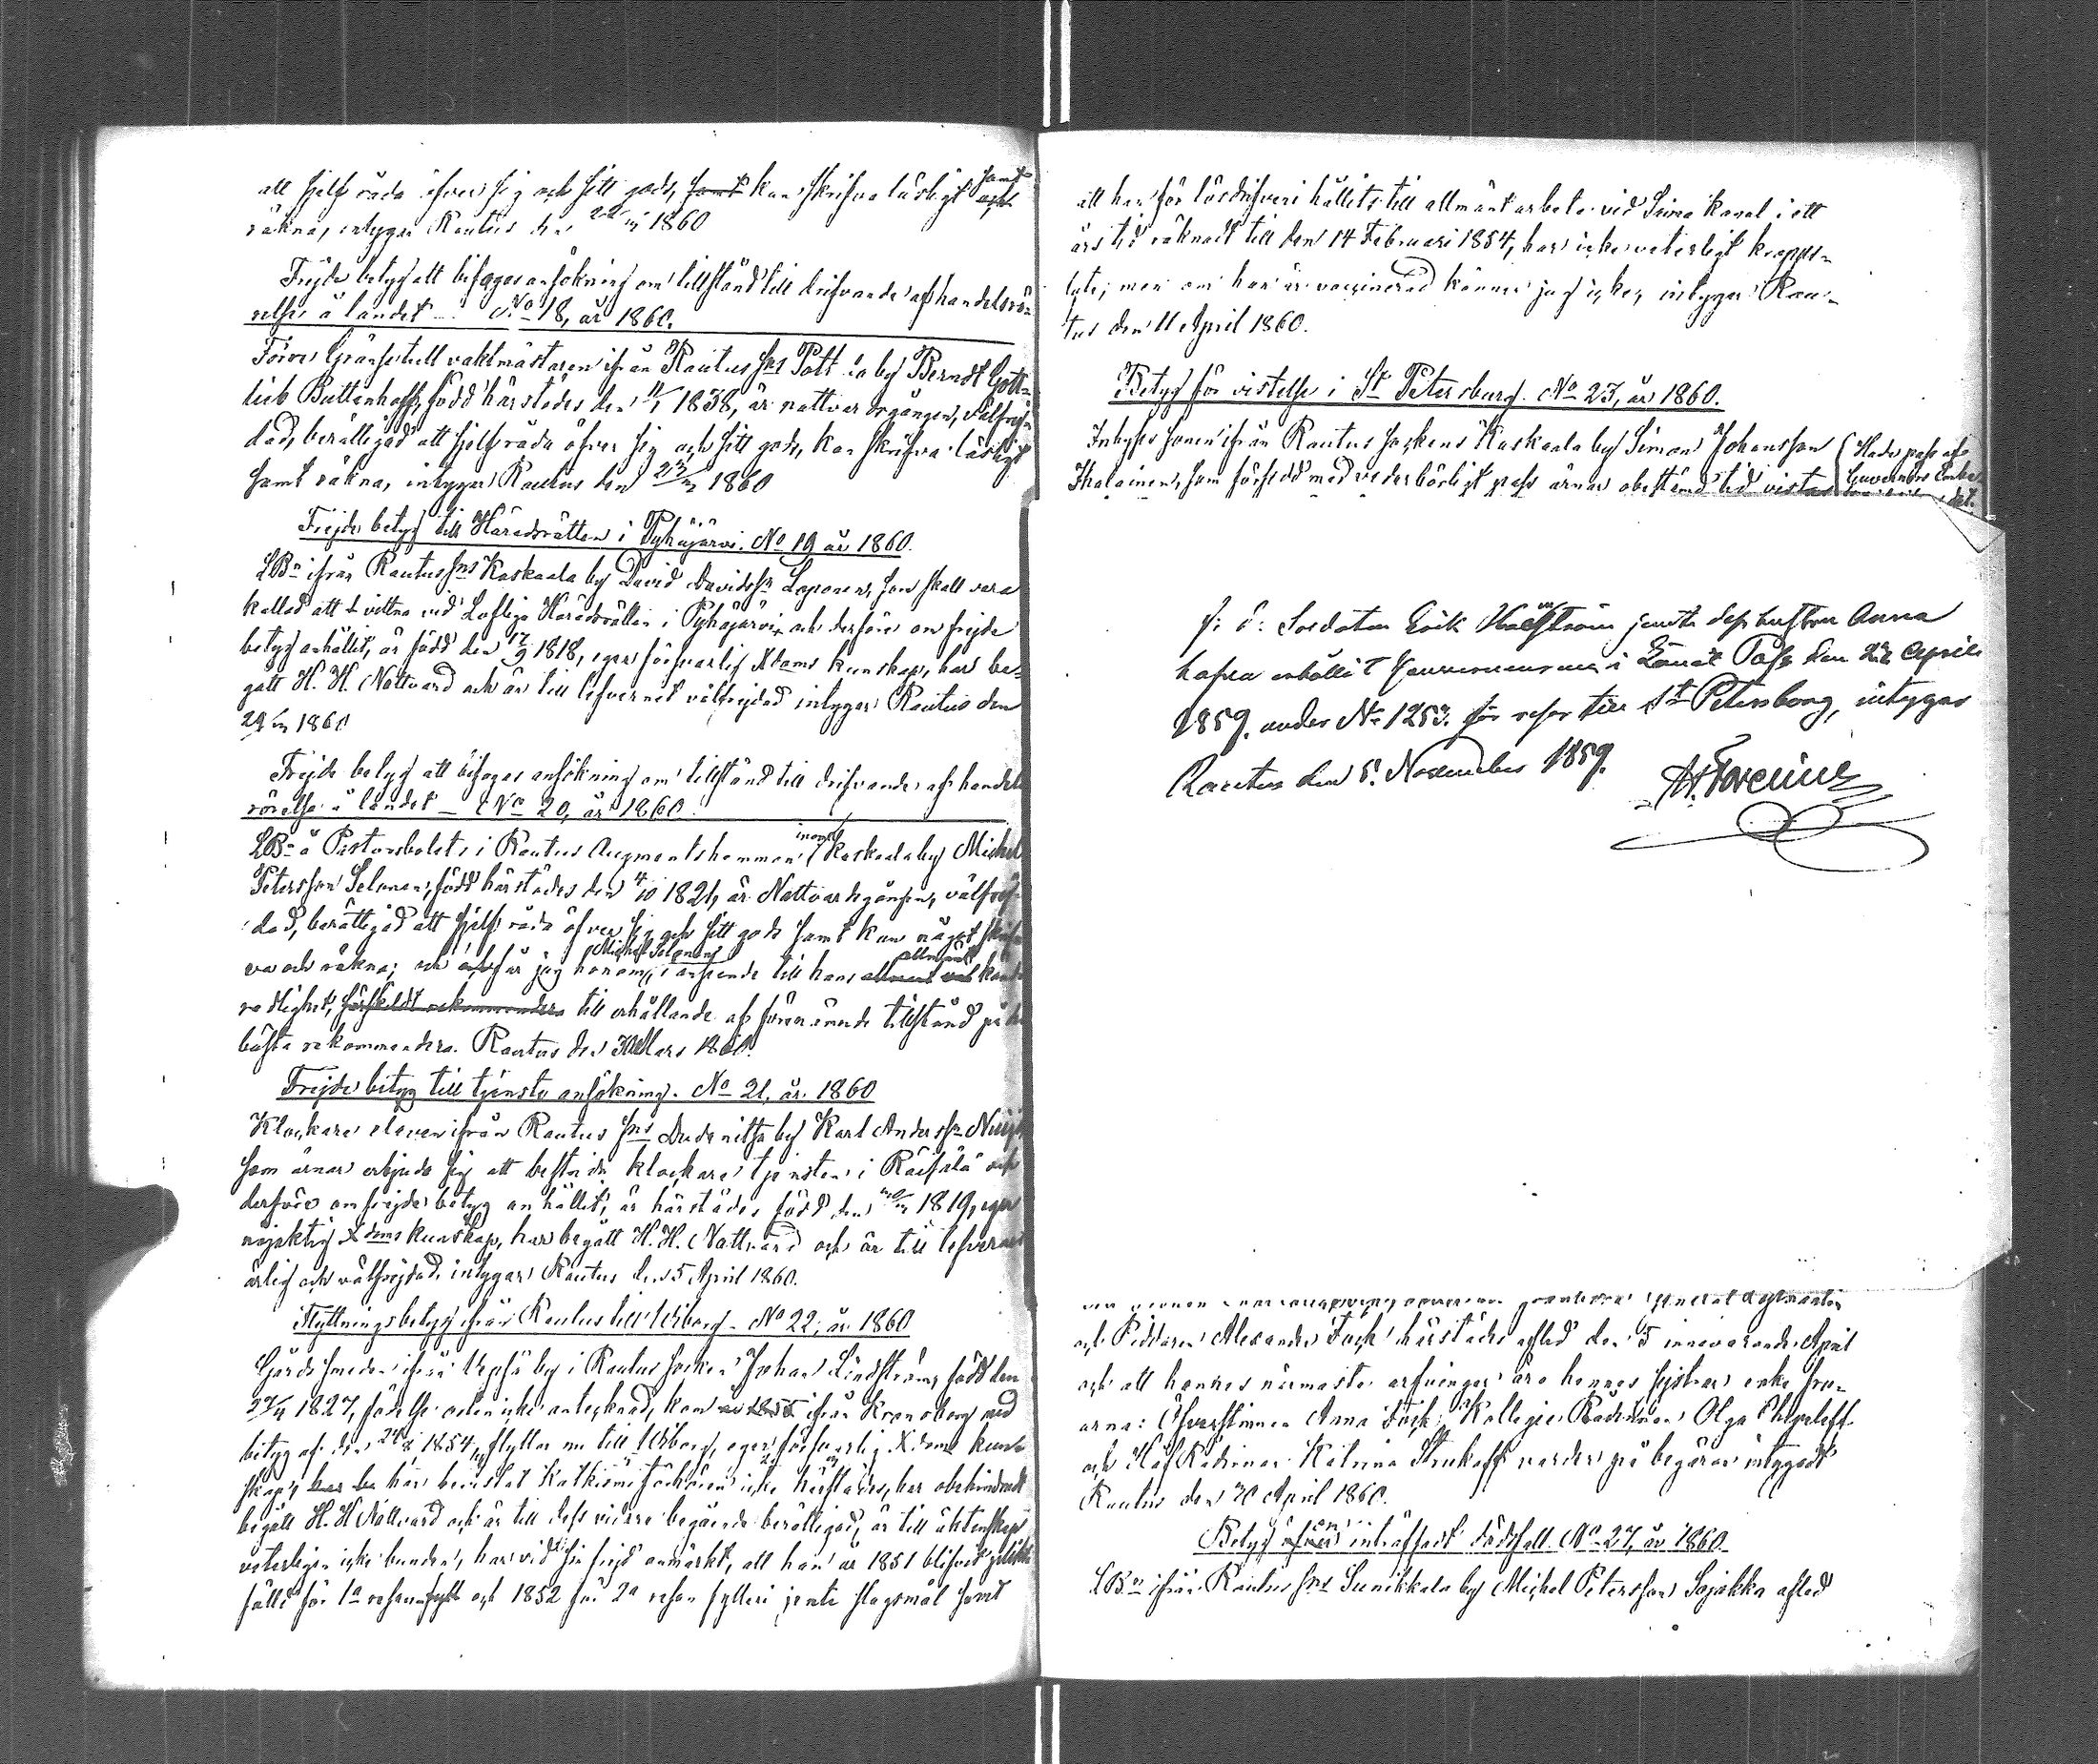 att sjelf råda öfver sig och sitt gods, samt kan skrifva läsligt samt
räkna, intygar Rautus den 22/III 1860
Frejde betyg att bifogas ansökning om tillstånd till drifvande af handelsrö-
relse å landet No 18, år 1860.
Förre Gränsetull vaktmästaren ifrån Rautus sns Potk la by Berndt Gott-
lieb Buttenhoff, född härstädes den 11/1 1838, är nattvardsgången, välfrej-
dad, berättigad att sjelf råda öfver sig och sitt gods, kan skrifva läsligt
samt räkna, intygar Rautus den 23/III 1860
Frejde betyg till Häradsrätten i Pyhäjärvi. No 19 år 1860.
LBn ifrån Rautus sns Kaskaala by David Davidssn Loponen, som skall vara
kallad att vittna vid Loflige Häradsrätten i Pyhäjärvi, och derföre om frejde
betyg anhållit, är född den 17/9 1818, eger försvarlig Xdoms kunskap, har be-
gått H. H. Nattvard och är till lefvernet välfrejdad intygar Rautus den
29/III 1860
Frejde betyg att bifogas ansökning om tillstånd till drifvande af handels
rörelse å landet — No 20, år 1860.
LBn å Pastorsbolets i Rautus Augmentshemman inom Kaskaala by Michel
Petersson Selonen, född härstädes den 4/10 1821, är Nattvardsgången, välfrej-
dad, berättigad att sjelf råda öfver sig och sitt gods samt kan något skrif
va och räkna; och får jag honom, Michel Selonen i anseende till hans allmänt kända
redlighet, särskildt rekommendera till erhållande af förenämnde tillstånd på det
bästa rekommendera. Rautus den 30 Mars 1860.
Frejde betyg till tjenste ansökning. No 21, år 1860
Klockare eleven ifrån Rautus sns by Karl Anderssn
som ärnar erbjuda sig att bestrida klockare tjensten i Räisälä och
derföre om frejde betyg anhållit, är härstädes född den 1819, eger
nöjaktig Xdoms kunskap, har begått H. H. Nattvard och är till lefvernet
ärlig och välfrejdad, intygar Rautus den 5 April 1860.
Flyttningsbetyg ifrån Rautus till Wiborg. No 22, år 1860
Gårdssmeden ifrån by i Rautus socken Johan Lindström, född den
27/4 1827, födelse orten icke antecknad, kom år 1855 ifrån Kronoborg med
betyg af den 1854, flyttar nu till Wiborg, eger försvarlig Xdoms kun-
skap, har be har bevistat Katkismi förhören icke härstädes, har obehindradt
begått H. H Nattvard och är till dess vidare begående berättigad, är till äktenskap
veterligen icke bunden, har vid sin frejd anmärkt, att han år 1851 blifvit
fälld för 1a resan och 1852 för 2a resan fylleri jemte slagsmål samt
att han för lösdrifveri hållits till allmänt arbete vid Saima kanal i ett
års tid räknadt till den 14 Februari 1854, har icke veterligt kropps-
lyte; men om han är vaccinerad känner jag icke, intygar Rau-
tus den 11 April 1860.
Betyg för vistelse i St Petersburg. No 23, år 1860.
Inhyses sonen ifrån Rautus sockens Kaskaala by Simon Johansson
Ihalainen, som försedd med vederbörligt pass ärnar obestämd tid vistas
(Hade pass af
Guvernörs Embe-
det.
f: d: Soldaten Erik Hallström jemte dess hustru Anna
hafva erhållit Gouverneurens i Länet Pass den 22 April
1859. under No 1253. för resor till St Petersborg, intygar
Rautus den 5. November 1859.
och Riddaren Alexander Fock härstädes afled den 5 innevarande April
och att hennes närmaste arfvingar äro hennes systrar enke fru-
arna: Öfverstinnan Anna Fock, Kollegie Rådinnan Olga
och Hof Rådinnan Katrina varder på begäran intygadt
Rautus den 20 April 1860.
Betyg öfver om inträffadt dödsfall. No 27, år 1860.
LBn ifrån Rautus sns Sunikkala by Michel Petersson Sojakka afled